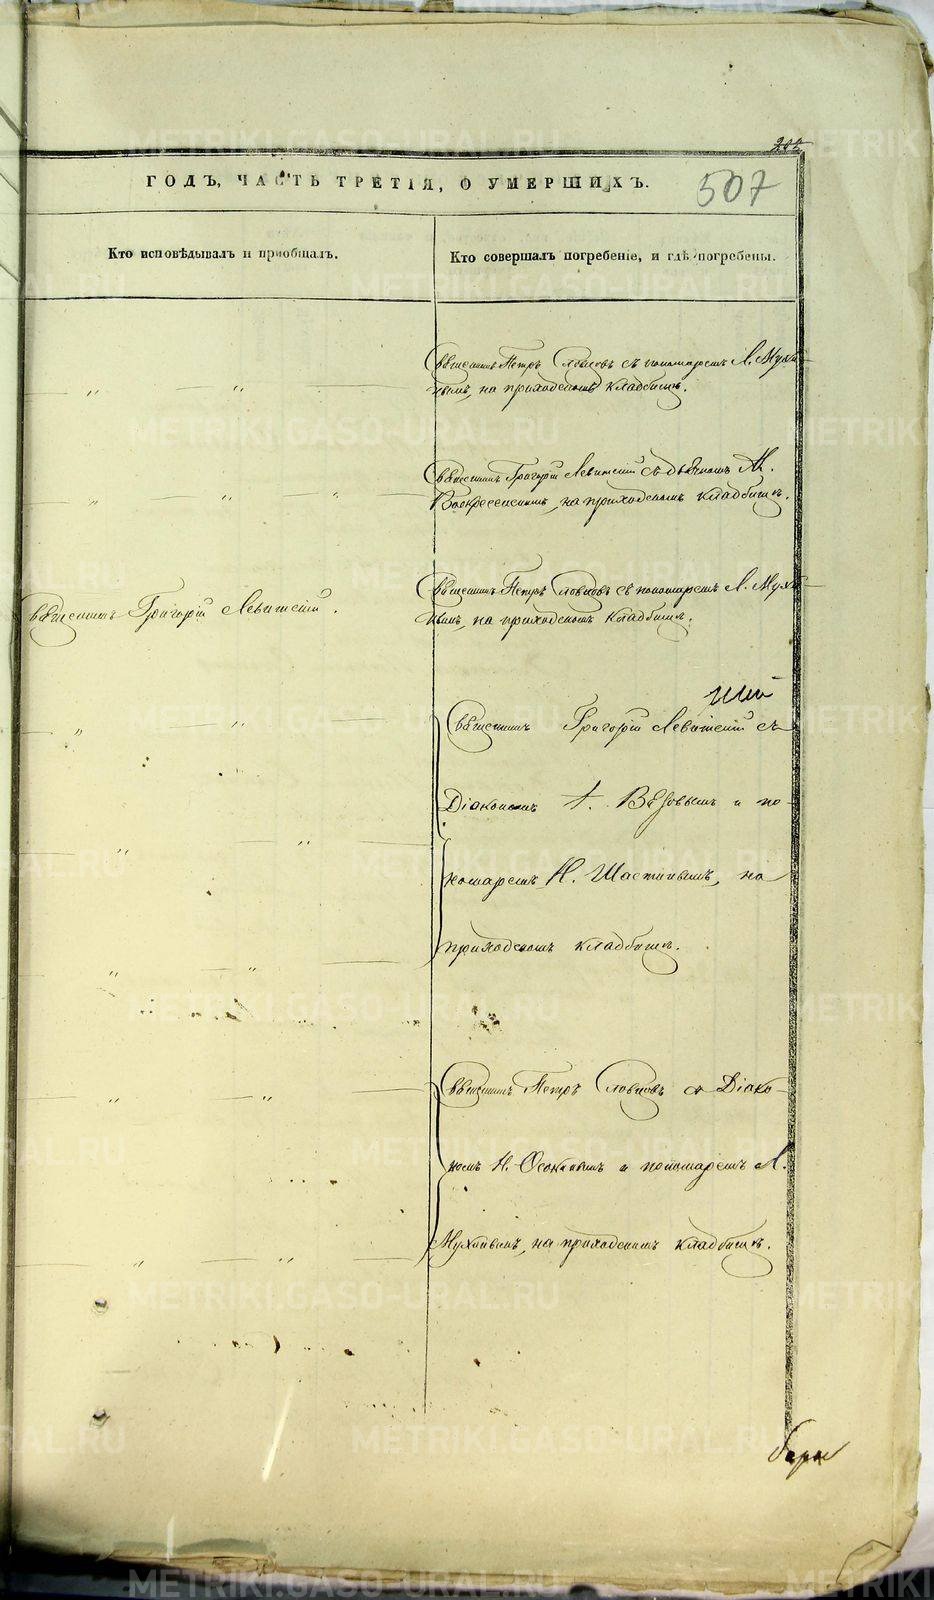 ГОДЪ, ЧАСТЬ ТРЕТІЯ, О УМЕРШИХЪ.
507
Кто исповѣдывалъ и пріобщалъ.
Кто совершалъ погребеніе, и гдѣ погребены.
Священникъ Петръ Словцовъ съ пономаремъ Л. Мухи-
нымъ, на приходскомъ кладбищѣ.
Священникъ Григорій Левитскій съ дьячкомъ
Воскресенскимъ, на приходскомъ кладбищѣ.
Священникъ Григорій Левитскій.
Священникъ Петръ Словцовъ съ пономаремъ Л. Мухи-
нымъ, на приходскомъ кладбищѣ.
Священникъ Григорій Левитскій съ
Діакономъ и по-
номаремъ Н. Шастинымъ, на
приходскомъ кладбищѣ.
Священникъ Петръ Словцовъ съ Діако-
номъ Н. и пономаремъ Л.
Мухинымъ, на приходскомъ кладбищѣ.
METRIKI.GASO-URAL.RU